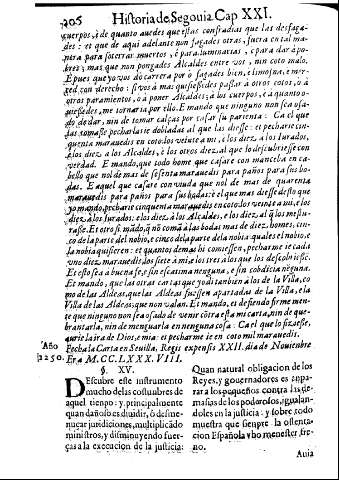 206 Historia de Segouia Cap XXI.
cuerpos, è de quanto auedes que estas confradias que las desfaga-
des: et que de aqui adelante non fagades otras, fuera en tal ma-
nera para soterrar muertos, è para luminarias, è para dar à po-
bres; mas que non pongades Alcaldes entre vos, nin coto malo.
E pues que yo vos dò carrera por ò fagades bien, è limosna, è mer-
ced, con derecho: si vos à mas quisiesedes passar à otros cotos, ò à
otros paramientos, ò a poner Alcaldes; à los cuerpos, è à quanto o-
uiessedes, me tornaria por ello. E mando que ninguno non sea osa-
do de dar, nin de tomar calças por casar su parienta: Ca el que
las tomasse pecharlas ie dobladas al que las diesse: et pecharie cin-
quenta marauedis en coto los veinte a mi, è los diez, à los Iurados,
è los diez a los Alcaldes, è los otros diez al que lo descubriesse con
verdad. E mando, que todo home que casare con manceba en ca-
bello que nol dè mas de sesenta marauedis para paños para sus bo-
das. E aquel que casare con viuda que nol dè mas de quarenta
marauedis para paños para sus bodas: è el que mas diesse desto que
yo mando, pecharie cinquenta marauedis en coto los veinte a mi, è los
diez, à los Iurados: è los diez à los Alcaldes, è los diez, al q̃ los mesu-
rasse. Et otro si mãdo, q̃ nõ comã à las bodas mas de diez, homes, cin-
co de la parte del nobio, è cinco de la parte de la nobia quales el nobio, è
la nobia quisieren: è quantos demas hi comiessen, pecharme ie cada
vno diez, marauedis, los siete à mi, è los tres à los que los descobriessẽ.
Et esto sea à buena fe, è sin escatima neguna, è sin cobdicia neguna.
Et mando, que las otras cartas que yo di tambien à los de la Villa, co
mo de las Aldeas, que las Aldeas fuessen apartadas de la Villa, è la
Villa de las Aldeas, que non valan. Et mando, et defiendo firmemen-
te que ninguno non sea osado de venir cõtra esta mi carta, nin de que-
brantarla, nin de menguarla en ninguna cosa: Ca el que lo fiziesse,
aurie la ira de Dios, è mia: et pecharme ie en coto mil marauedis.
Fecha la Carta en Seuilla, Regis expensis XXII. dia de Nouiembre
Año 1250.
Era M.CC.LXXXVIII.
§. XV.
Descubre este instrumento
mucho de las costumbres de
aquel tiempo: y principalmente
quan dañoso es diuidir, ò desme-
nuçar jurisdiciones, multiplicãdo
ministros, y disminuyendo fuer-
ças a la execucion de la justicia:
Quan natural obligacion de los
Reyes, y gouernadores es ampa-
rar a los pequeños contra las de-
masias de los poderosos, igualan-
doles en la justicia: y sobre todo
muestra que siempre la ostenta-
cion Española vbo menester fre-
no.
Auia